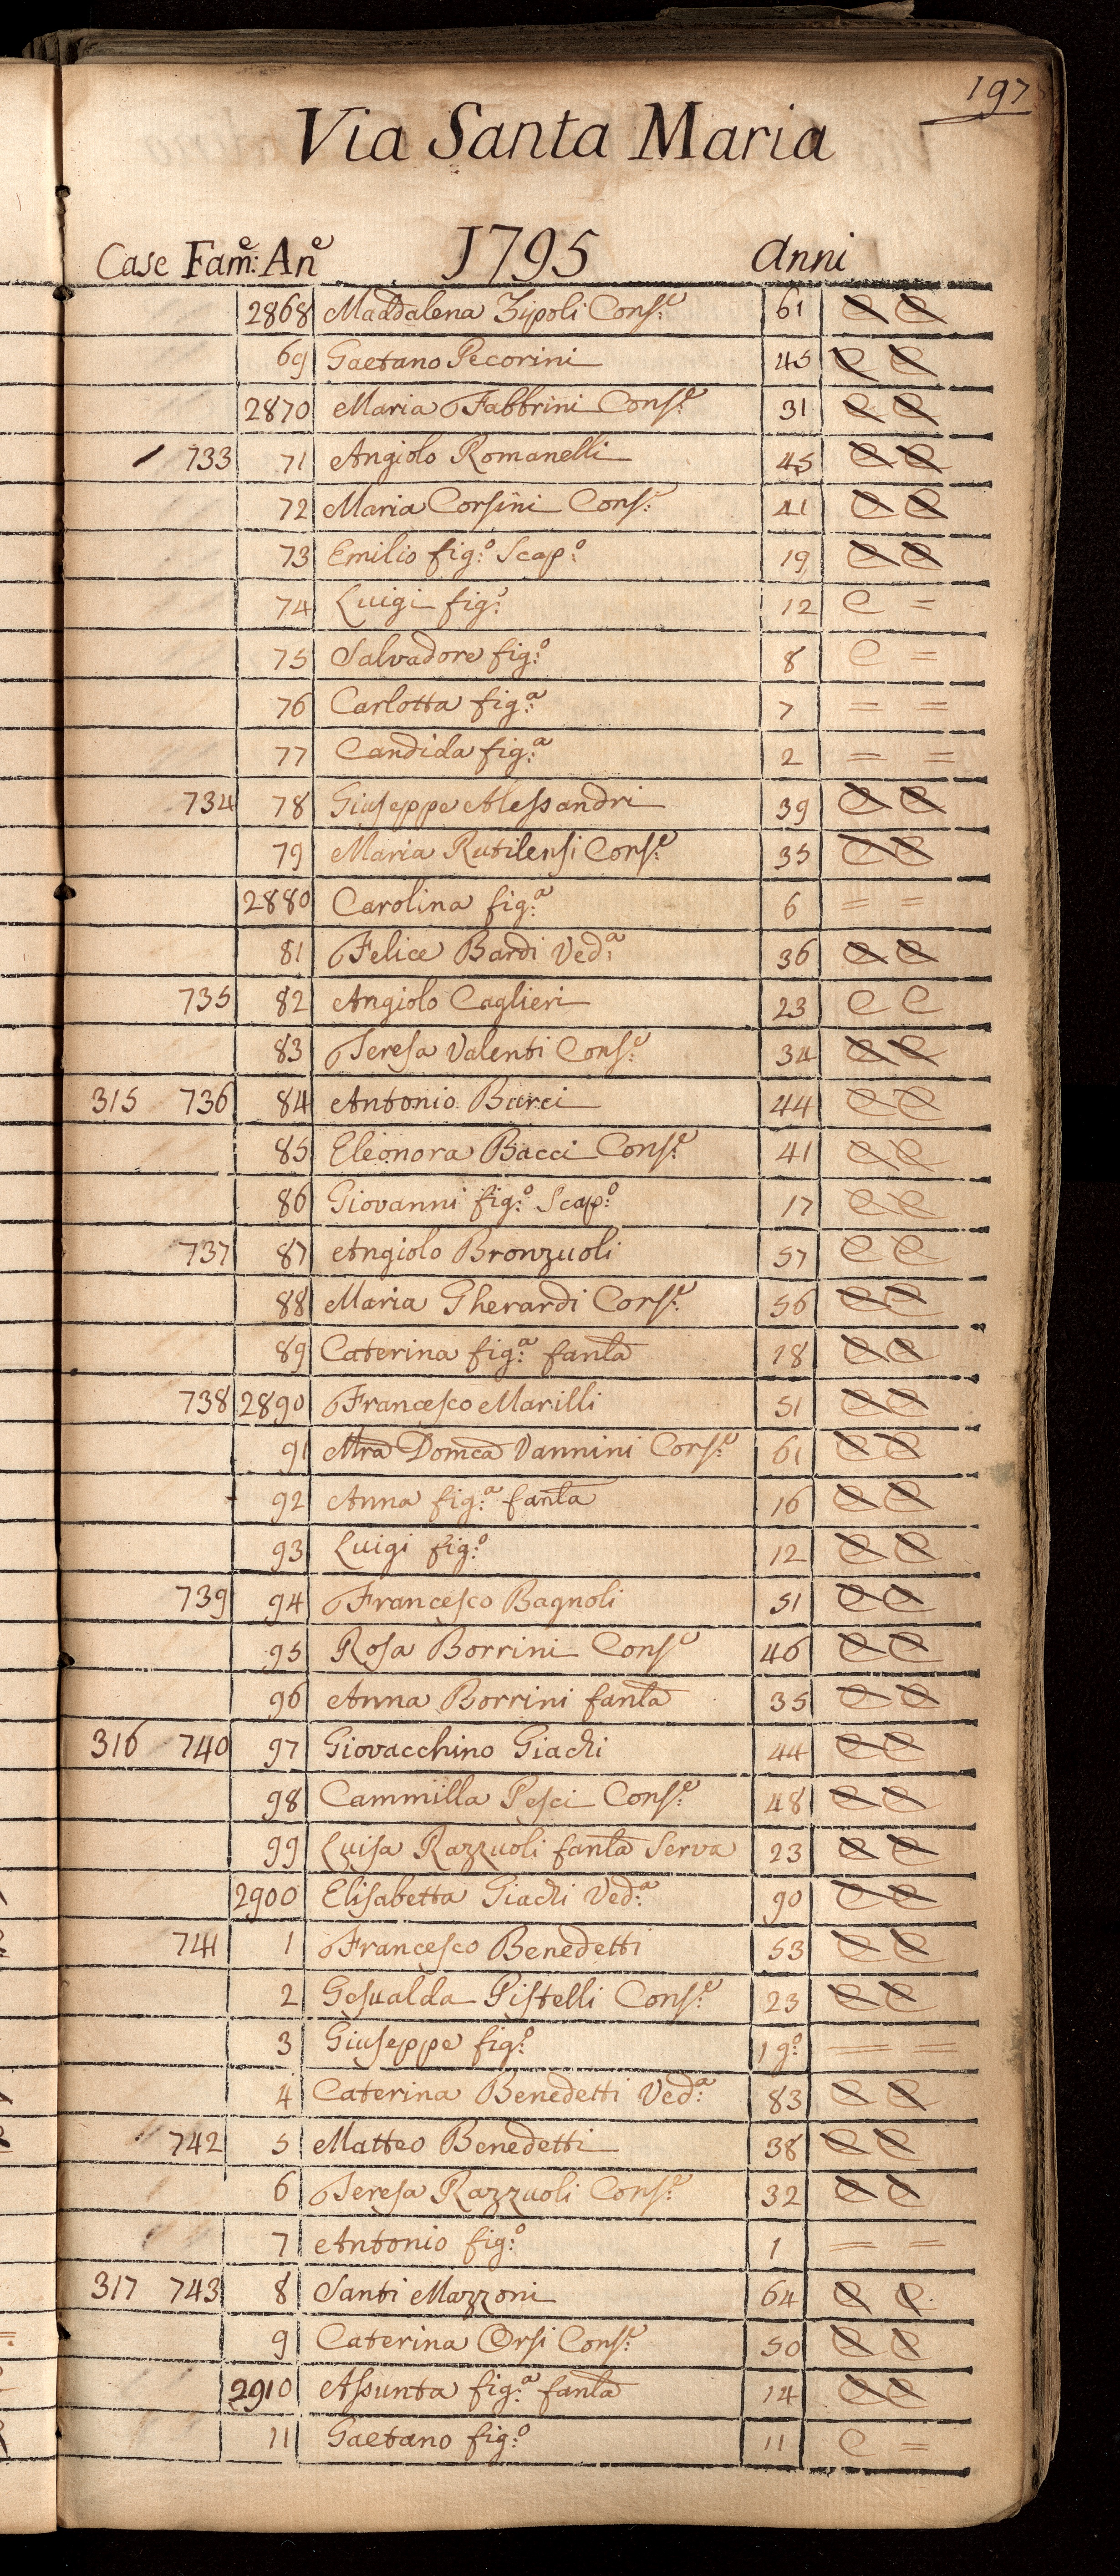 197
Via Santa Maria
Case Fam:e An:e 1795 Anni
2868 Maddalena Zipoli Cons:e 61 C C
69 Gaetano Pecorini 45 C C
2870 Maria Fabbrini Cons:e 31 C C
733 71 Angiolo Romanelli 45 C C
72 Maria Corsini Cons:e 41 C C
73 Emilio fig:o Scap:o 19 C C
74 Luigi fig:o 12 C =
75 Salvadore fig:o 8 C =
76 Carlotta fig:a 7 = =
77 Candida fig:a 2 = =
734 78 Giuseppe Alessandri 39 C C
79 Maria Rutilensi Cons:e 35 C C
2880 Carolina fig:a 6 = =
81 Felice Bardi Ved:a 36 C C
735 82 Angiolo Caglieri 23 C C
83 Teresa Valenti Cons:e 34 C C
315 736 84 Antonio Burci 44 C C
85 Eleonora Bacci Cons:e 41 C C
86 Giovanni fig:o Scap:o 17 C C
737 87 Angiolo Bronzuoli 57 C C
88 Maria Gherardi Cons:e 56 C C
89 Caterina fig:a fanla 18 C C
738 2890 Francesco Marilli 51 C C
91 Mra Domca Vannini Cons:e 61 C C
92 Anna fig:a fanla 16 C C
93 Luigi fig:o 12 C C
739 94 Francesco Bagnoli 51 C C
95 Rosa Borrini Cons:e 46 C C
96 Anna Borrini fanla 35 C C
316 740 97 Giovacchino Giachi 44 C C
98 Cammilla Pesci Cons:e 48 C C
99 Luisa Razzuoli fanla Serva 23 C C
2900 Elisabetta Giachi Ved:a 90 C C
741 1 Francesco Benedetti 53 C C
2 Gesualda Pistelli Cons:e 23 C C
3 Giuseppe fig:o 1 g:o = =
4 Caterina Benedetti Ved:a 83 C C
742 5 Matteo Benedetti 38 C C
6 Teresa Razzuoli Cons:e 32 C C
7 Antonio fig:o 1 = =
317 743 8 Santi Mazzoni 64 C C
9 Caterina Orsi Cons:e 50 C C
2910 Assunta fig:a fanla 14 C C
11 Gaetano fig:o 11 C =